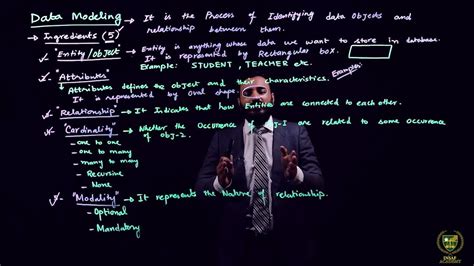 Data Modeling → It is the Process of Identifying data Objects and
relationship between them.
→ Ingredients (5)
"Entity/object" → Entity is anything whose data we want to store in database.
It is represented by Rectangular box.
Example: STUDENT, TEACHER etc.
"Attributes"
Attributes defines the object and their characteristics.
It is represented by Oval shape.
Example:
"Relationship" → It Indicates that how Entities are connected to each other.
"Cardinality" → Whether the Occurrence of obj-I are related to some occurrence
of obj-2.
- one to one
- one to many
- many to many
- Recursive
- None
"Modality" → It represents the Nature of relationship.
- Optional
- Mandatory
INSAF
ACADEMY